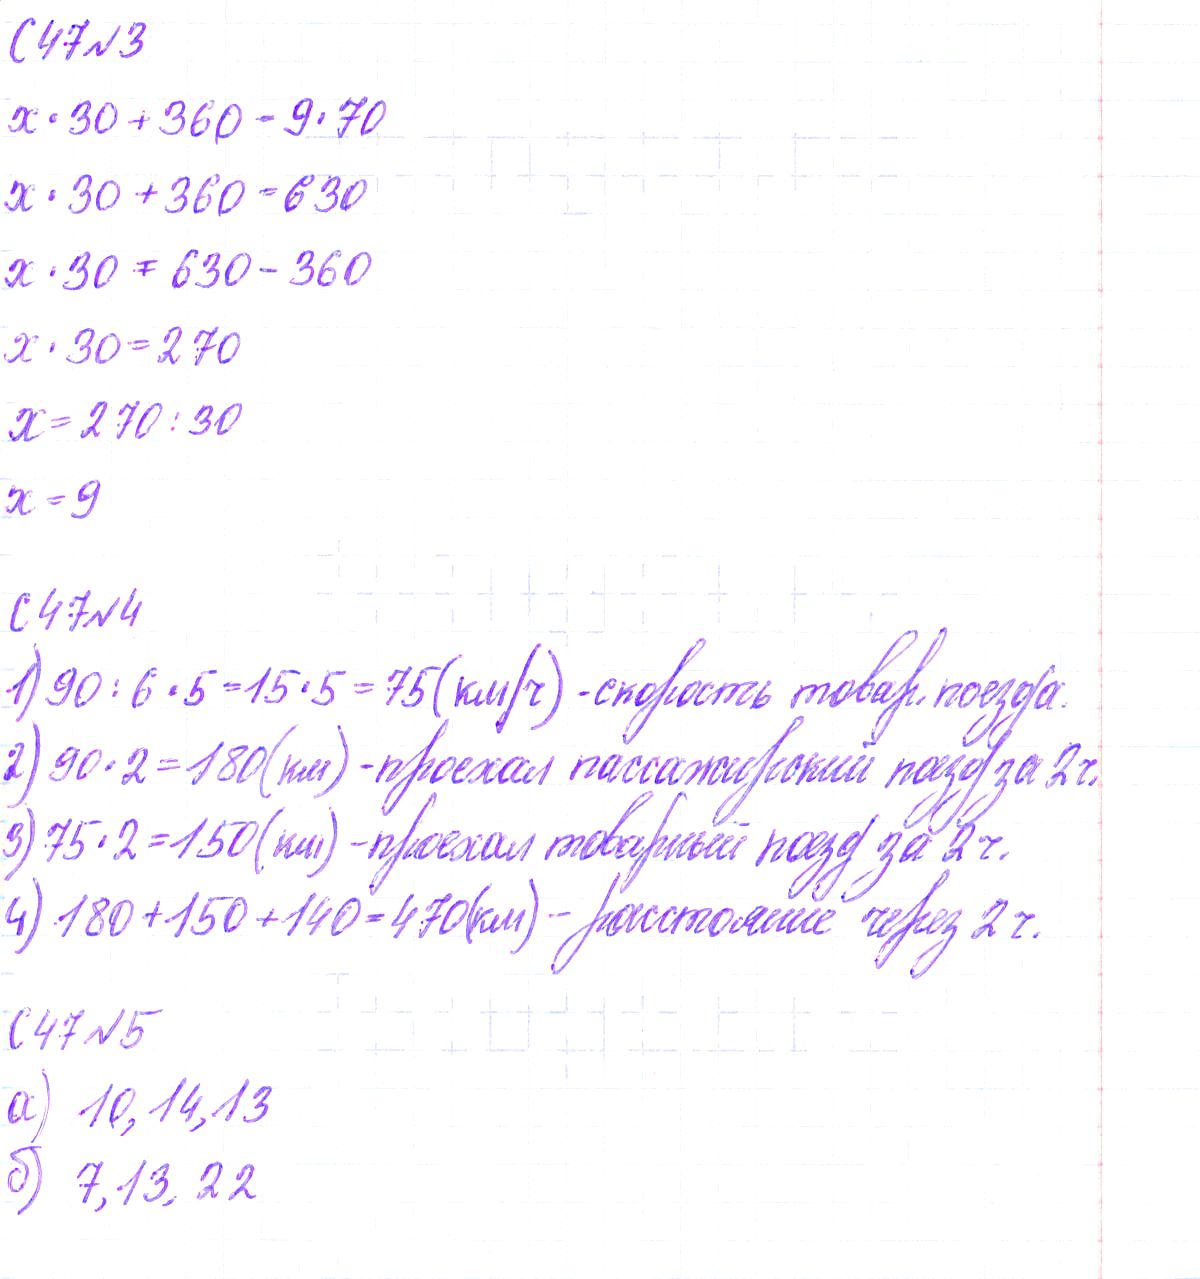 С 47 № 3
x · 30 + 360 = 9 · 70
x · 30 + 360 = 630
x · 30 = 630 - 360
x · 30 = 270
x = 270 : 30
x = 9
С 47 № 4
1) 90 : 6 · 5 = 15 · 5 = 75 (км/ч) - скорость товар. поезда.
2) 90 · 2 = 180 (км) - проехал пассажирский поезд за 2 ч.
3) 75 · 2 = 150 (км) - проехал товарный поезд за 2 ч.
4) 180 + 150 + 140 = 470 (км) - расстояние через 2 ч.
С 47 № 5
а) 10, 14, 13
б) 7, 13, 22